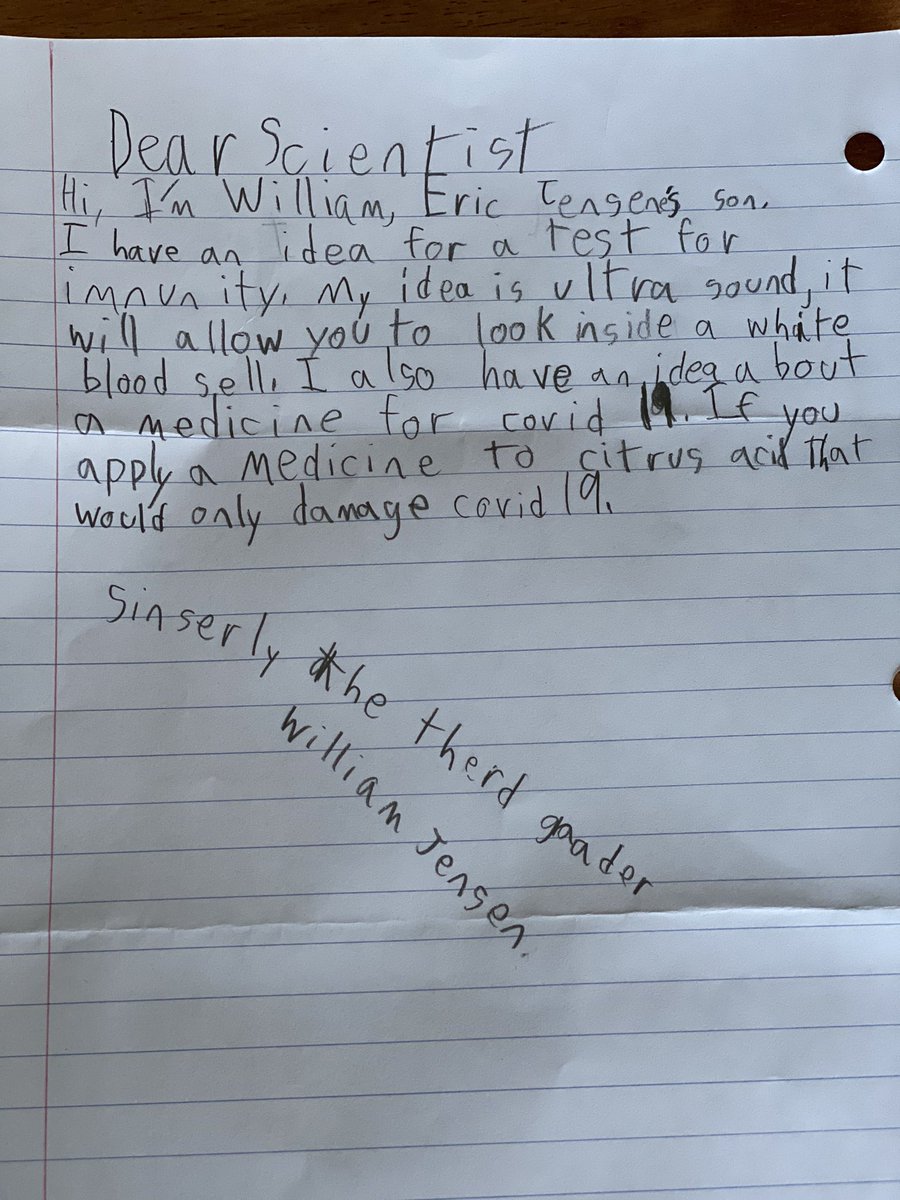 Dear Scientist
Hi, I'm William, Eric Tensene's son.
I have an idea for a test for
imnunity. My idea is ultra sound, it
will allow you to look inside a white
blood sell. I also have an idea about
a medicine for covid 19. If you
apply a medicine to citrus acid That
would only damage covid 19.
Sinserly the therd gaader
William Jensen.